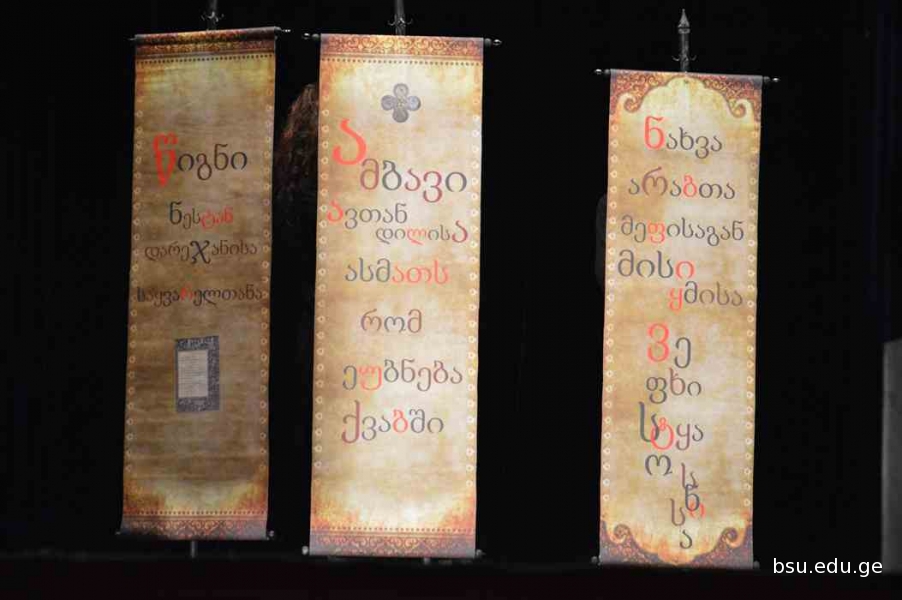 წიგნი
ნესტან
დარეჯანისა
საყვარელთანა
ამბავი
ავთან
დილისა
ასმათს
რომ
ეუბნება
ქვაბში
ნახვა
არაბთა
მეფისაგან
მისი
ყმისა
ვე
ფხი
სტყა
ო
ს
ნი
ს
ა
bsu.edu.ge